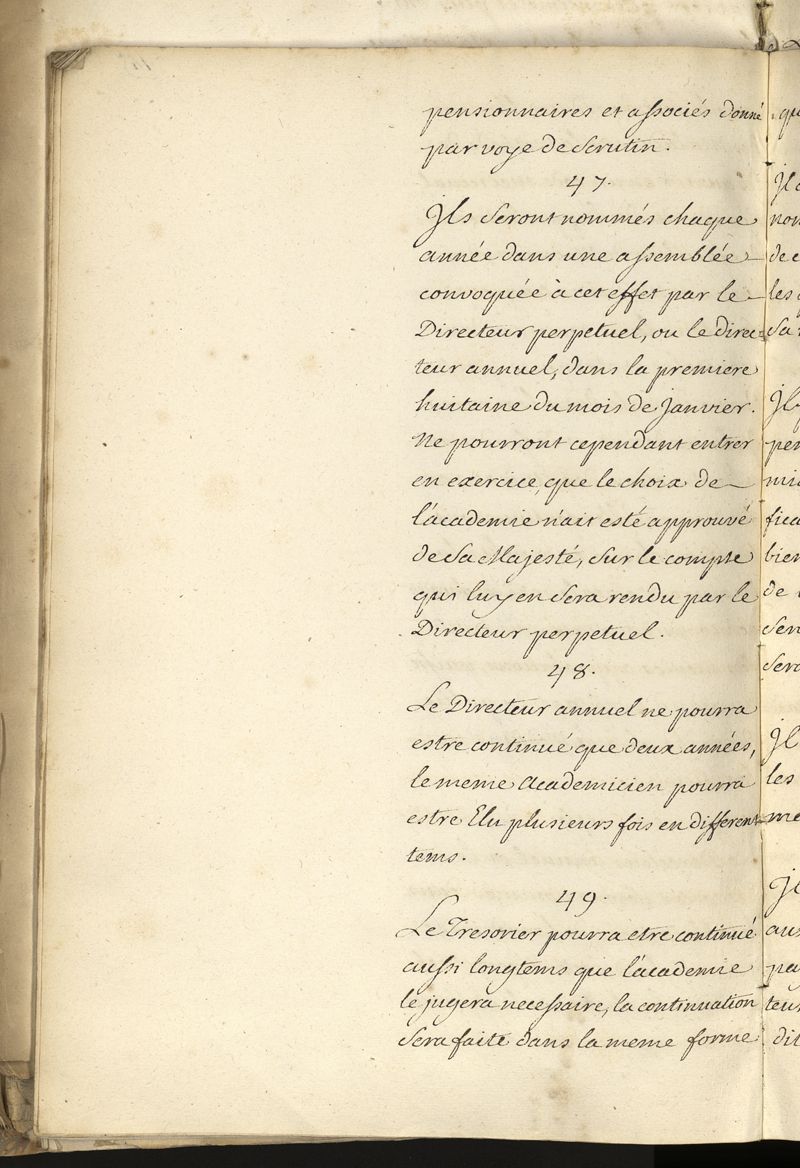 pensionnaires et associés donné
par voye de Scrutin.
47.
Jls Seront nommés chaque
année dans une assemblée
convoquée à cet effet par le
Directeur perpetuel, ou le direc-
teur annuel, dans la premiere
huitaine du mois de Janvier.
Ne pourront cependant entrer
en exercice, que le choix de
l'academie n'ait esté approuvé
de Sa Majesté, Sur le compte
qui luy en Sera rendu par le
Directeur perpetuel.
48.
Le Directeur annuel ne pourra
estre continué que deux années,
le meme Academicien pourra
estre Elu plusieurs fois en different
tems.
49.
Le Tresorier pourra etre continué
aussi longtems que l'academie
le jugera necessaire, la continuation
Sera faite dans la meme forme